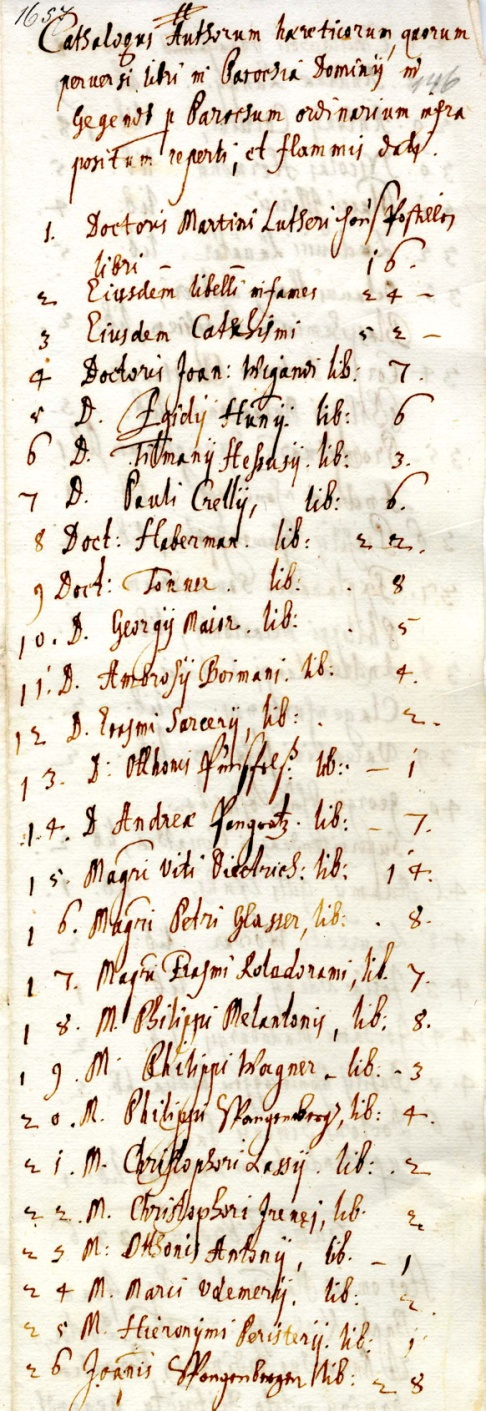 1657
Cathalogus Authorum haereticorum, quorum
perversi libri in Parochia Dominij in
146
Gegendt p Parochum ordinarium infra
positum reperti, et flammis dati.
1. Doctoris Martini Lutheri Postillen
libri – 16.
2 Eiusdem libelli infames 24 –
3 Eiusdem Cathechismi 52 –
4 Doctoris Joan: Wigandi lib: 7.
5 D. Egidij Hunij lib: 6
6 D. Tilmanij Hessusij. lib: 3.
7 D. Pauli Crellij, lib: 6.
8 Doct: Haberman. lib: 22.
9 Doct: Tonner. lib: . 8
10. D. Georgij Maior. lib: . 5
11. D. Ambrosij Boimani. lib: 4.
12 D. Erasmi Sarcerij, lib: . 2.
13. D: Otthonis lib: – 1
14. D Andreae Pangratz. lib: – 7.
15. Magri Viti Dietrich: lib: 14.
16. Magri Petri Glasser, lib: . 8.
17. Magri Erasmi Rotadorami, lib. 7.
18. M. Philippi Melantonis, lib: 8.
19. M. Philippi Wagner – lib: – 3
20. M. Philippi Spangenberg, lib: 4.
21. M. Christophori Lassij. lib: . 2
22. M. Christophori Irenej, lib. 2
23 M: Otthonis Antonij, lib. – 1
24 M. Marci Volemerij. lib: 2.
25 M. Hieronymi Peristerij. lib: 1
26 Joannis Spangenbergen lib: 28